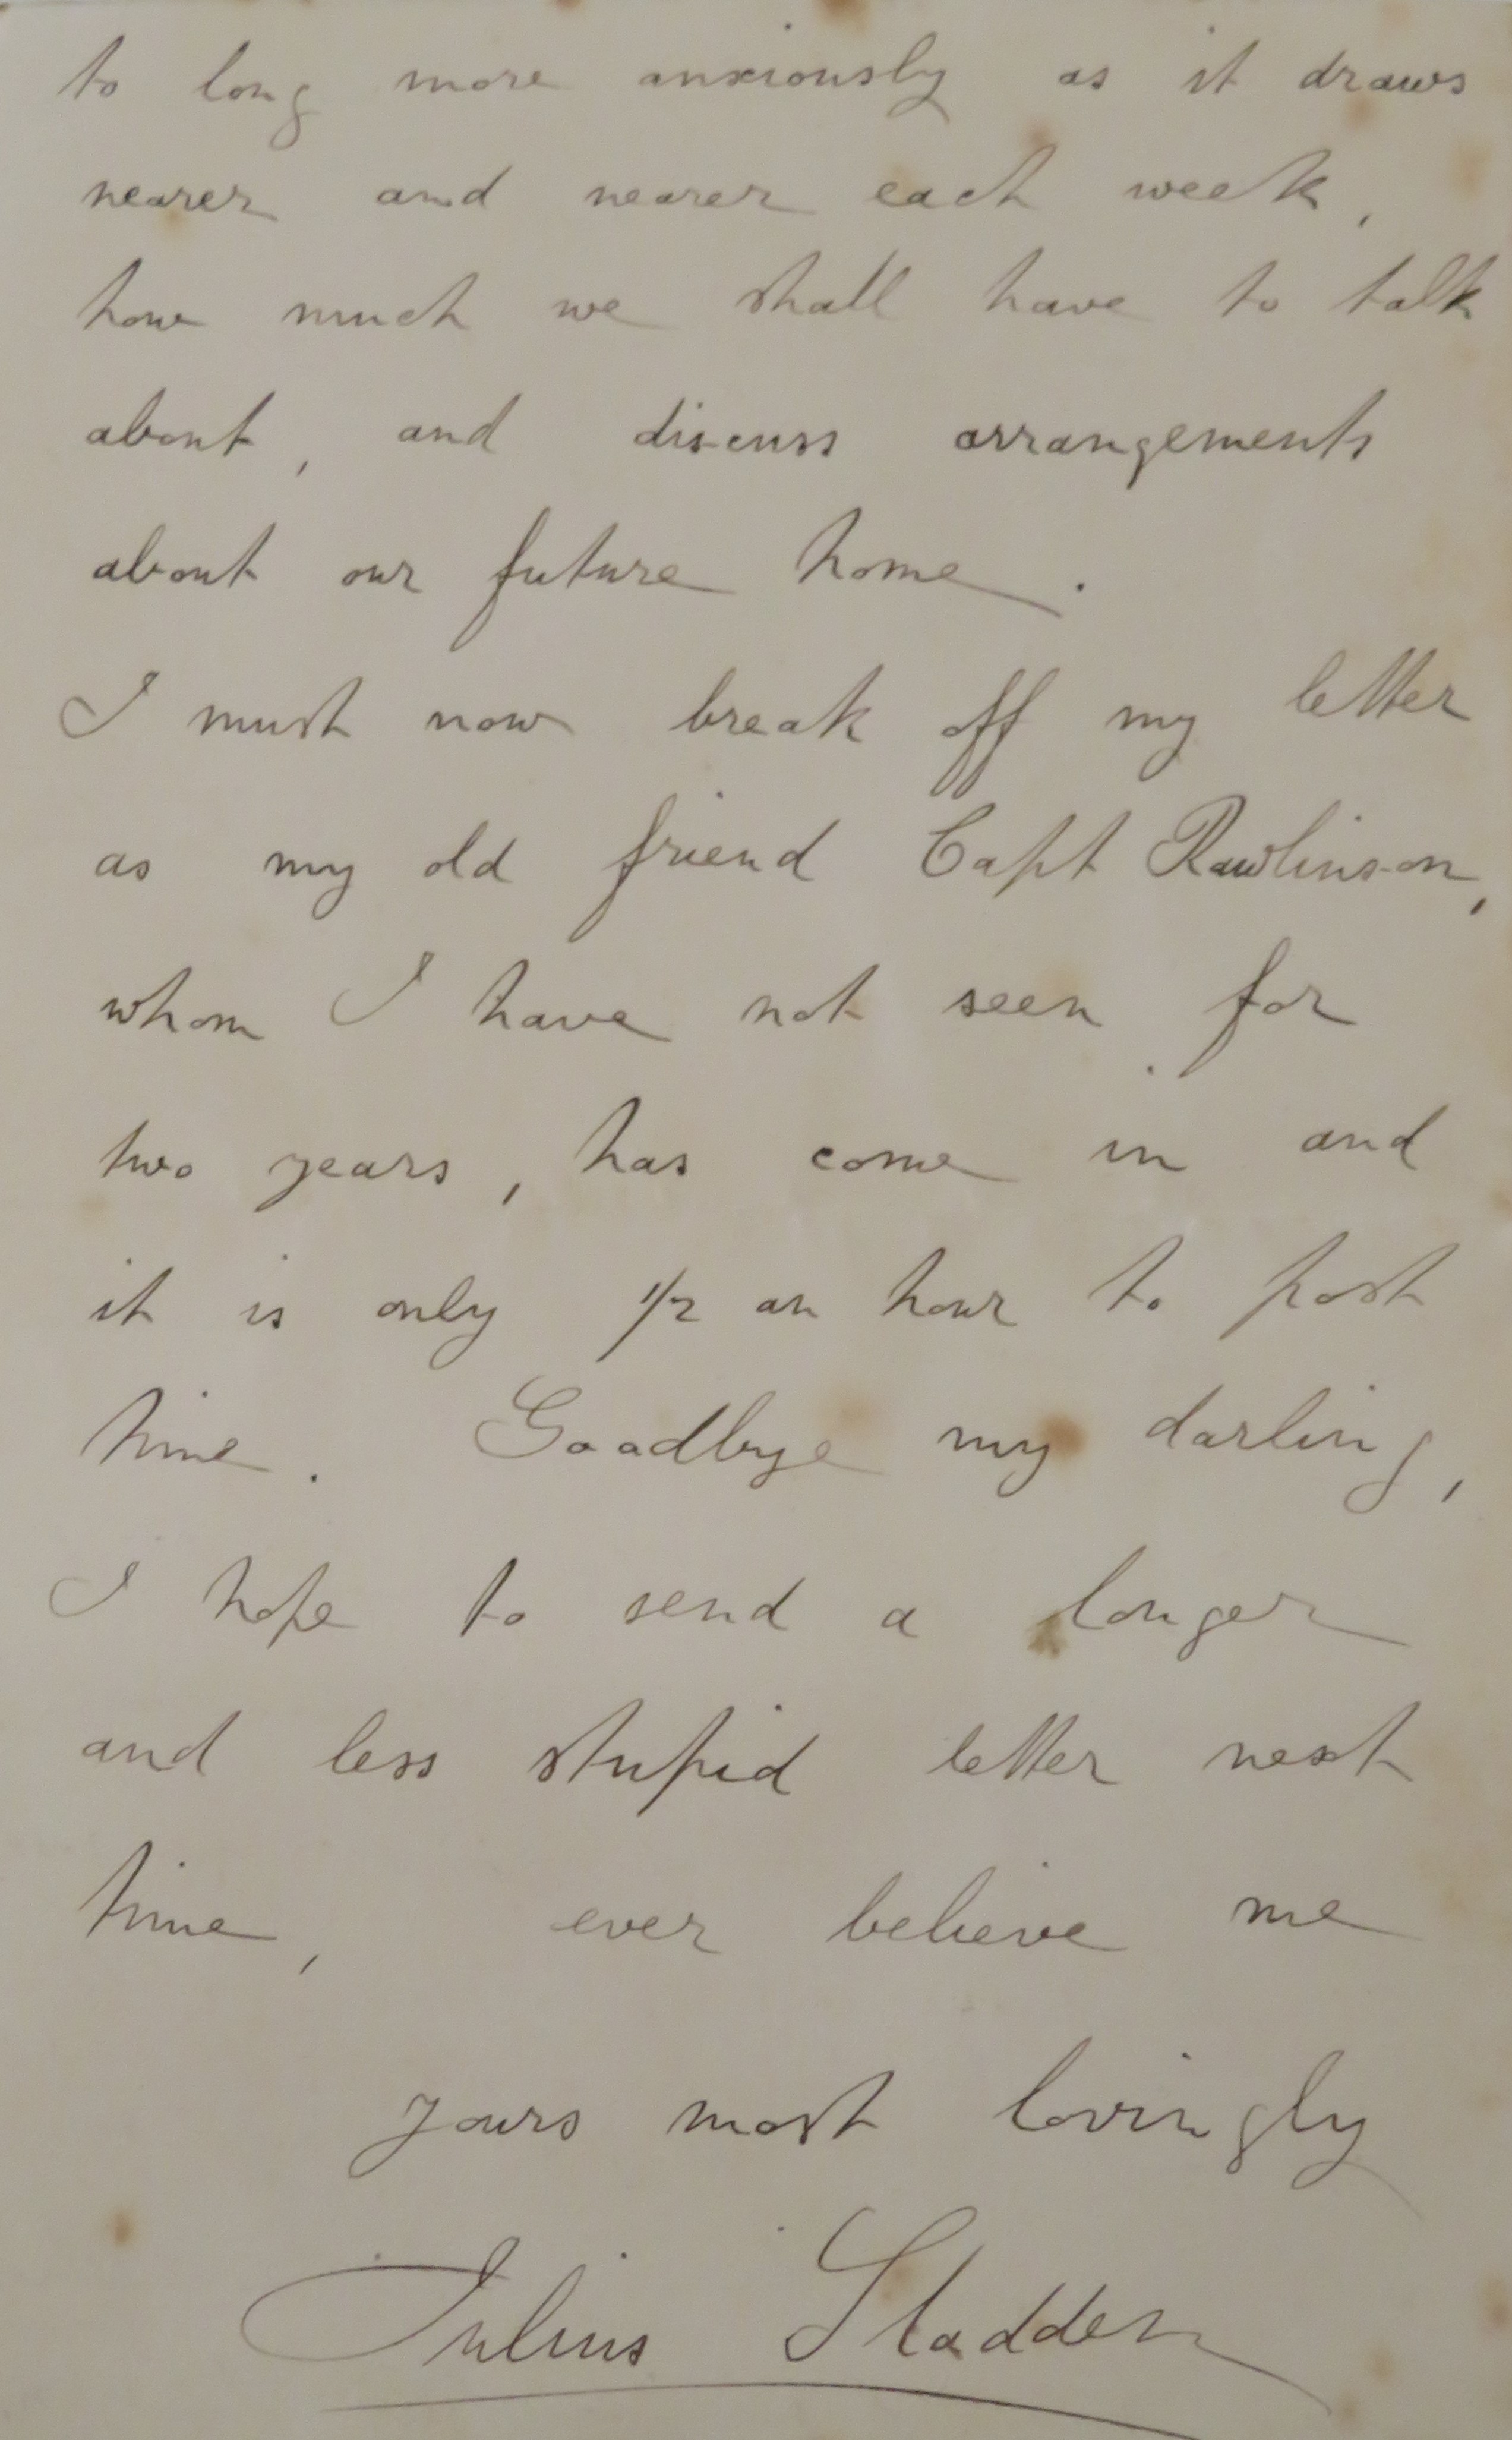 to long more anxiously as it draws
nearer and nearer each week,
how much we shall have to talk
about, and discuss arrangements
about our future home.
I must now break off my letter
as my old friend Capt Rawlinson,
whom I have not seen for
two years, has come in and
it is only 1/2 an hour to post
time. Goodbye my darling,
I hope to send a longer
and less stupid letter next
time, ever believe me
yours most lovingly
Julius Sladden